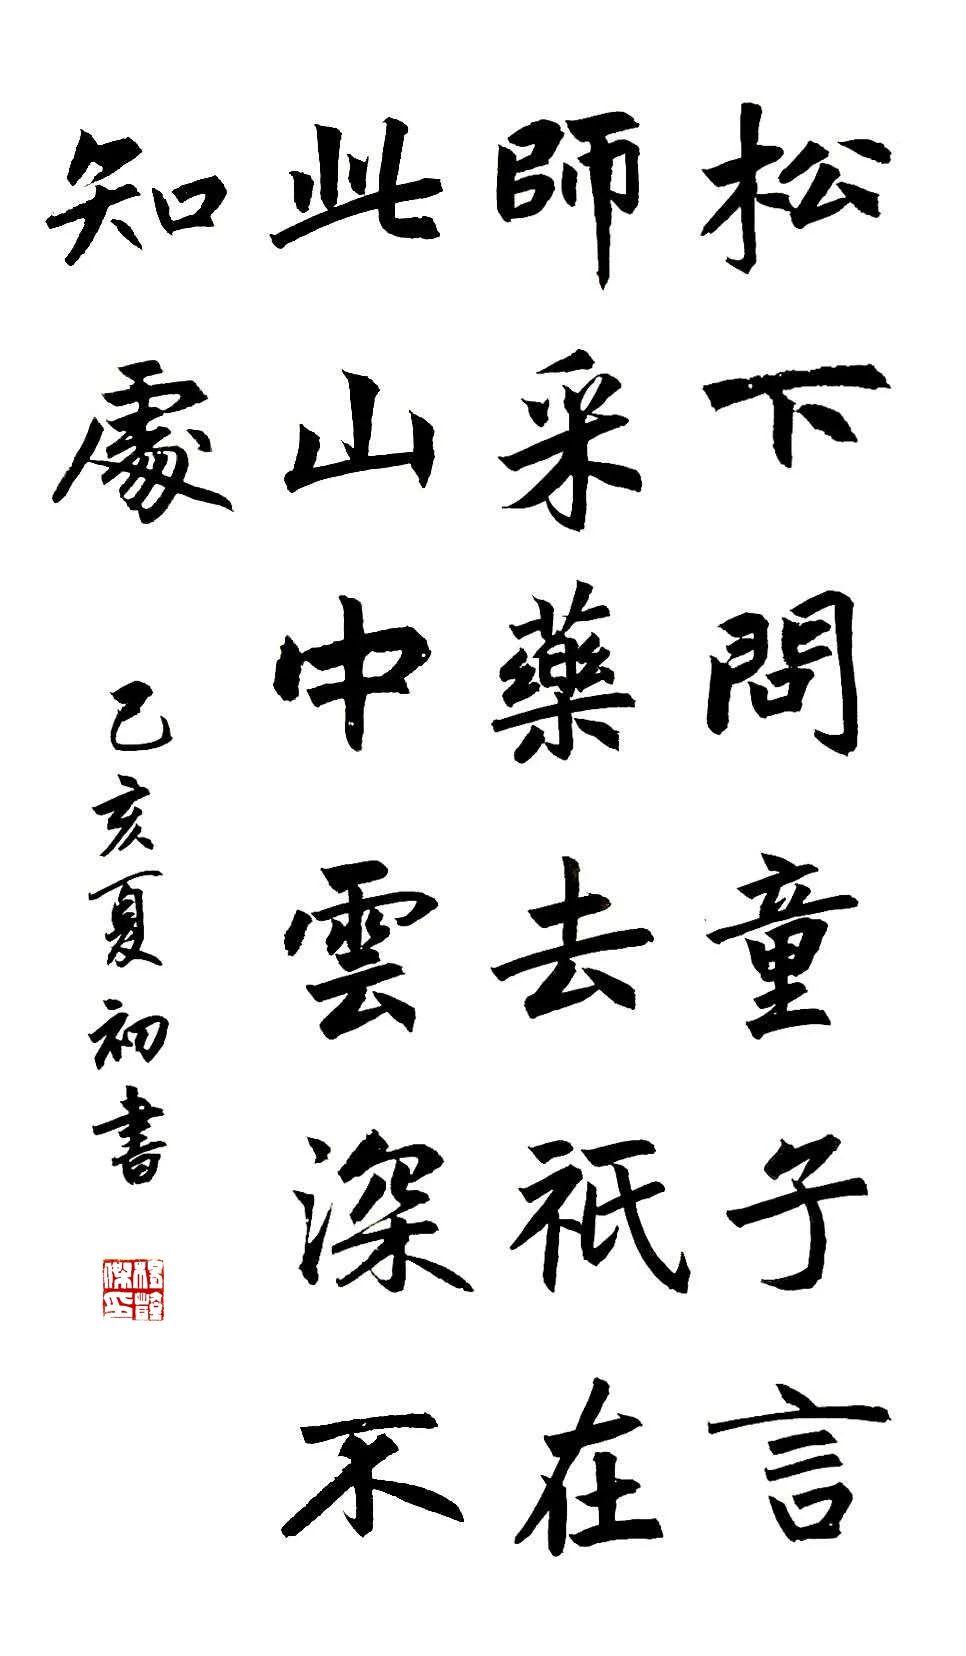 松下問童子言
師采藥去祇在
此山中雲深不
知處
己亥夏初書